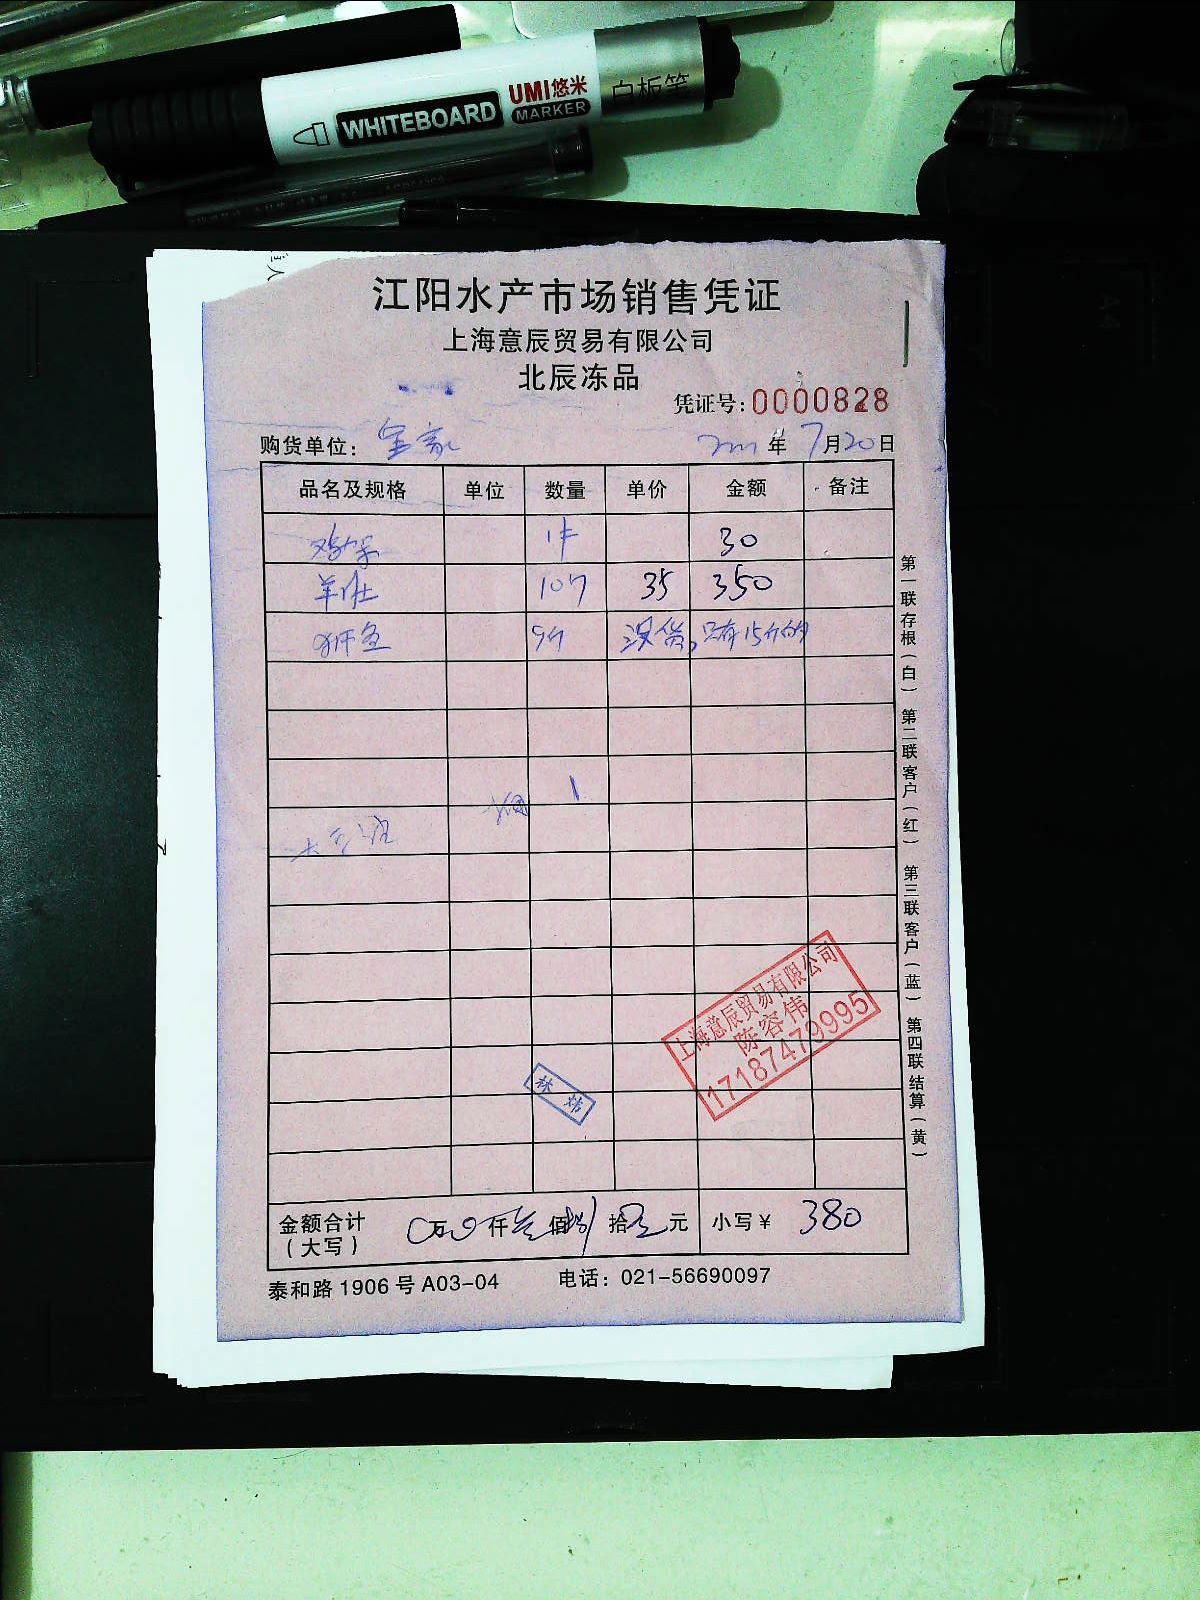 UMI悠米
WHITEBOARD MARKER 白板笔
江阳水产市场销售凭证
上海意辰贸易有限公司
北辰冻品
凭证号:0000828
购货单位: 年 7月20日
品名及规格 单位 数量 单价 金额 备注
鸡架 1件 30
羊肚 10斤 35 350
9斤 没货,只有15斤的
1
上海意辰贸易有限公司
陈容伟
17187479995
林炜
金额合计 万 0 仟 叁 佰 捌 拾 元 小写¥ 380
(大写)
泰和路1906号A03-04 电话:021-56690097
第一联存根(白) 第二联客户(红) 第三联客户(蓝) 第四联结算(黄)